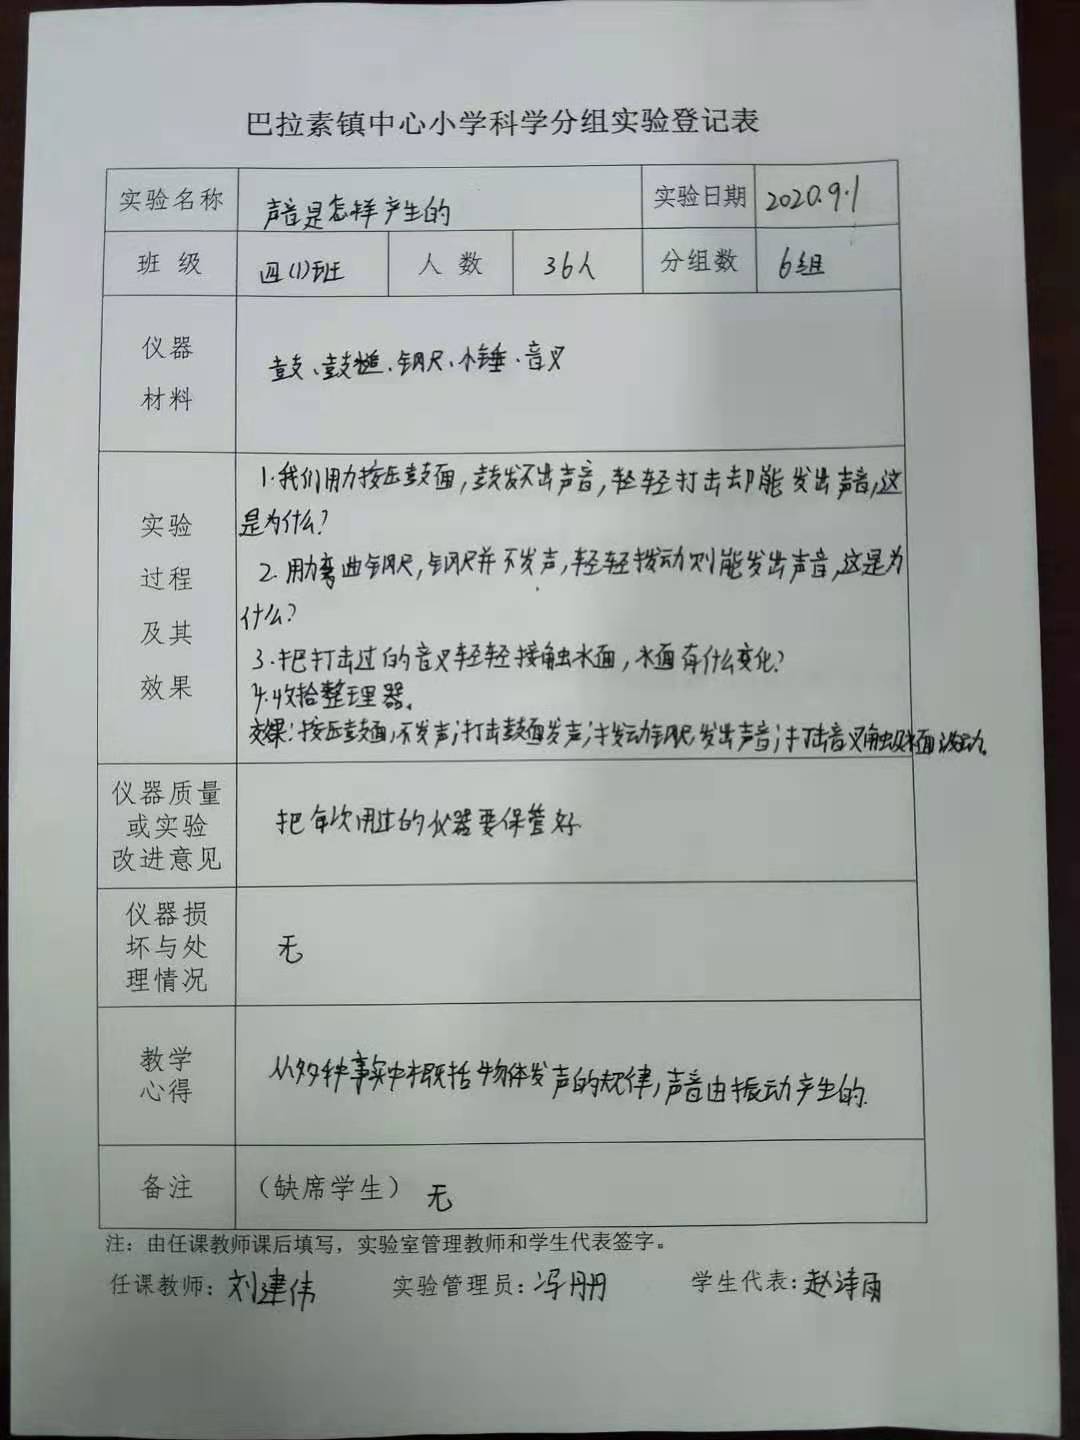 巴拉素镇中心小学科学分组实验登记表
实验名称 声音是怎样产生的 实验日期 2020.9.1
班 级 四(1)班 人 数 36人 分组数 6组
仪器
材料
鼓、鼓槌、钢尺、小锤、音叉
实验
过程
及其
效果
1.我们用力按压鼓面,鼓发不出声音,轻轻打击却能发出声音,这
是为什么?
2.用力弯曲钢尺,钢尺并不发声,轻轻拨动则能发出声音,这是为
什么?
3.把打击过的音叉轻轻接触水面,水面有什么变化?
4.收拾整理器。
效果:按压鼓面,不发声;打击鼓面发声;拨动钢尺发出声音;打击音叉触及水面波动。
仪器质量
或实验
改进意见
把每次用过的仪器要保管好
仪器损
坏与处
理情况
无
教学
心得
从多种事实中概括物体发声的规律,声音由振动产生的.
备注 (缺席学生) 无
注:由任课教师课后填写,实验室管理教师和学生代表签字。
任课教师:刘建伟 实验管理员:冯丹丹 学生代表:赵诗雨